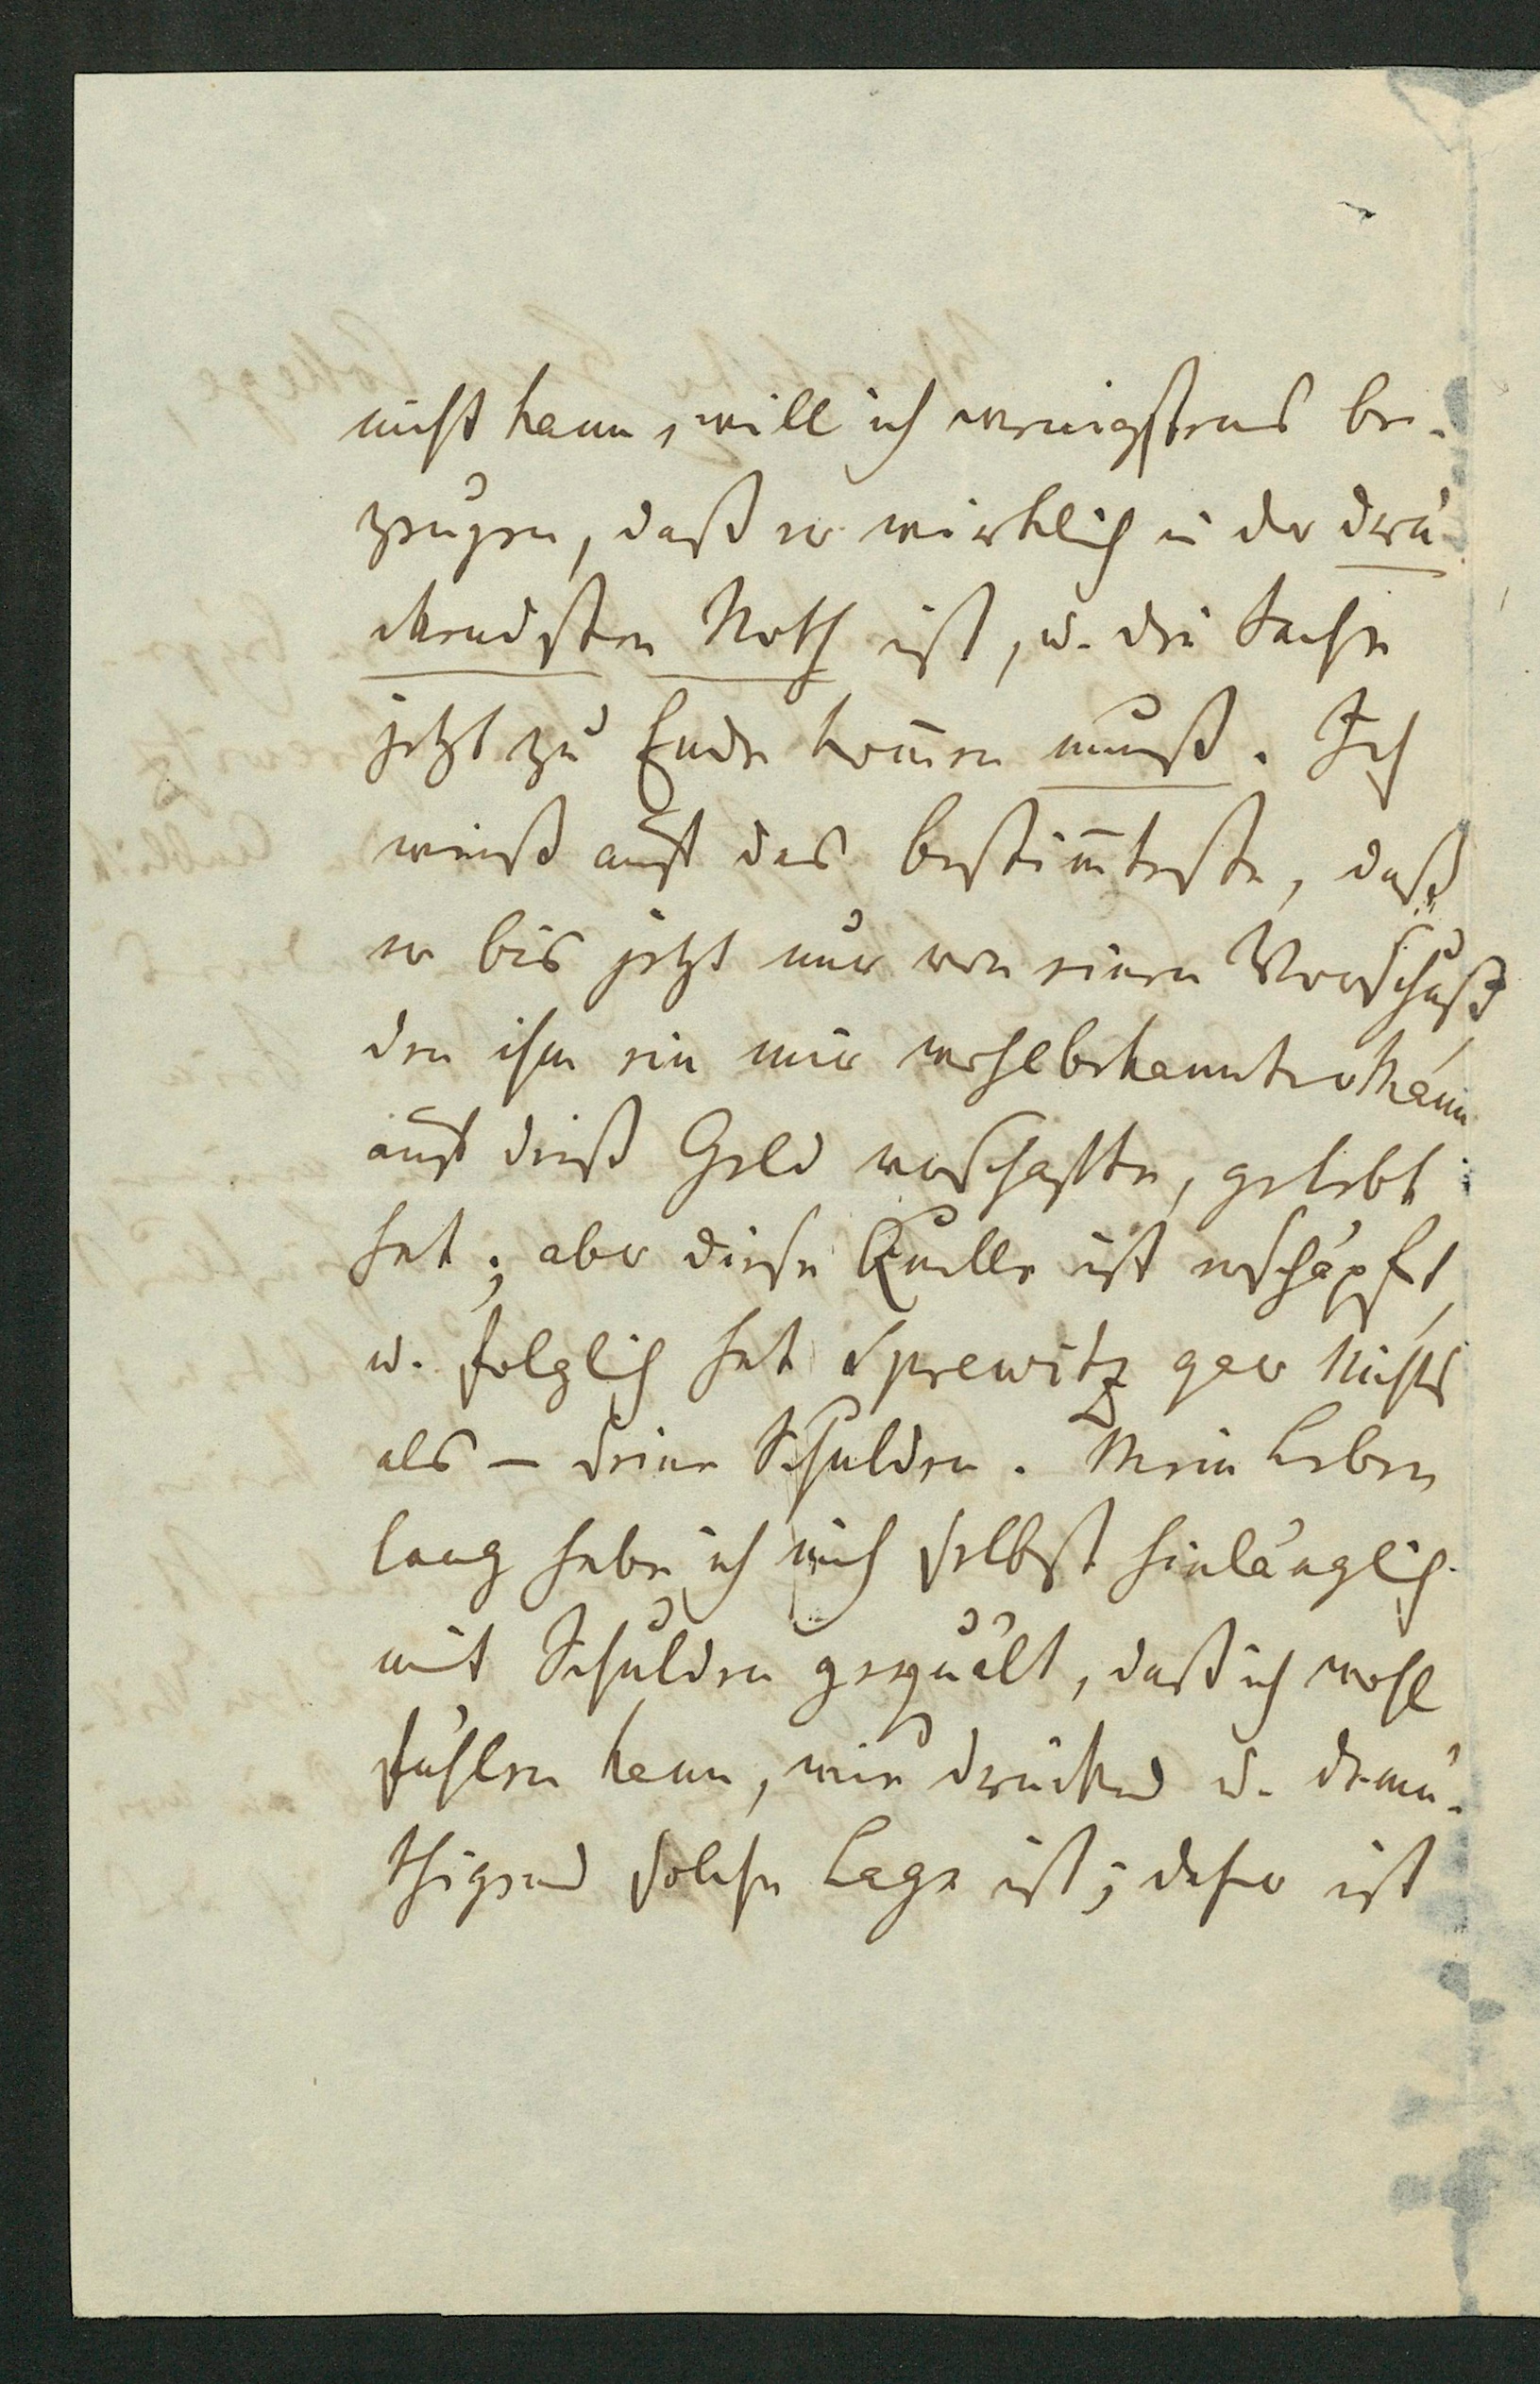 nicht kann, will ich wenigstens be-
zeugen, daß er wirklich in der drü-
ckendsten Noth ist, u. die Sache
jetzt zu Ende kom̄en muß. Ich
weiß auf das bestim̄teste, daß
er bis jetzt nur von einem Vorschuß
den ihm ein mir wohlbekannter Mann
auf dieß Geld verschaffte, gelebt
hat; aber diese Quelle ist erschöpft,
u. folglich hat Sprewitz gar Nichts
als – seine Schulden. Mein Leben
lang habe ich mich selbst hinlänglich
mit Schulden gequält, daß ich wohl
fühlen kann, wie drückend u. demü-
thigend solche Lage ist; daher ist